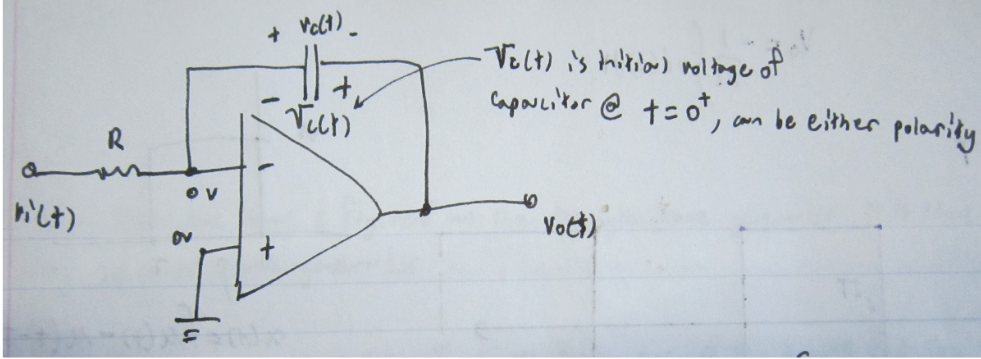 + vc(t) -
- +
Vc(t)
Vc(t) is initial voltage of
capacitor @ t=0+, can be either polarity
R
-
0V
vi(t)
0V
+
vo(t)